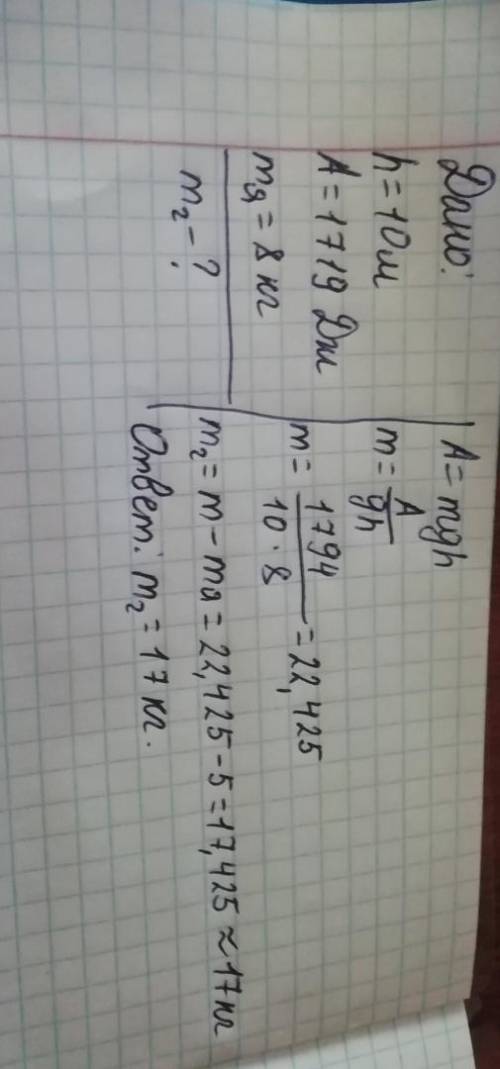 Дано:
h = 10м
A = 1719 Дж
mя = 8 кг
m₂ - ?
A = mgh
m = A/gh
m = 1794/10 · 8 = 22,425
m₂ = m - mя = 22,425 - 5 = 17,425 ≈ 17 кг
Ответ: m₂ = 17 кг.